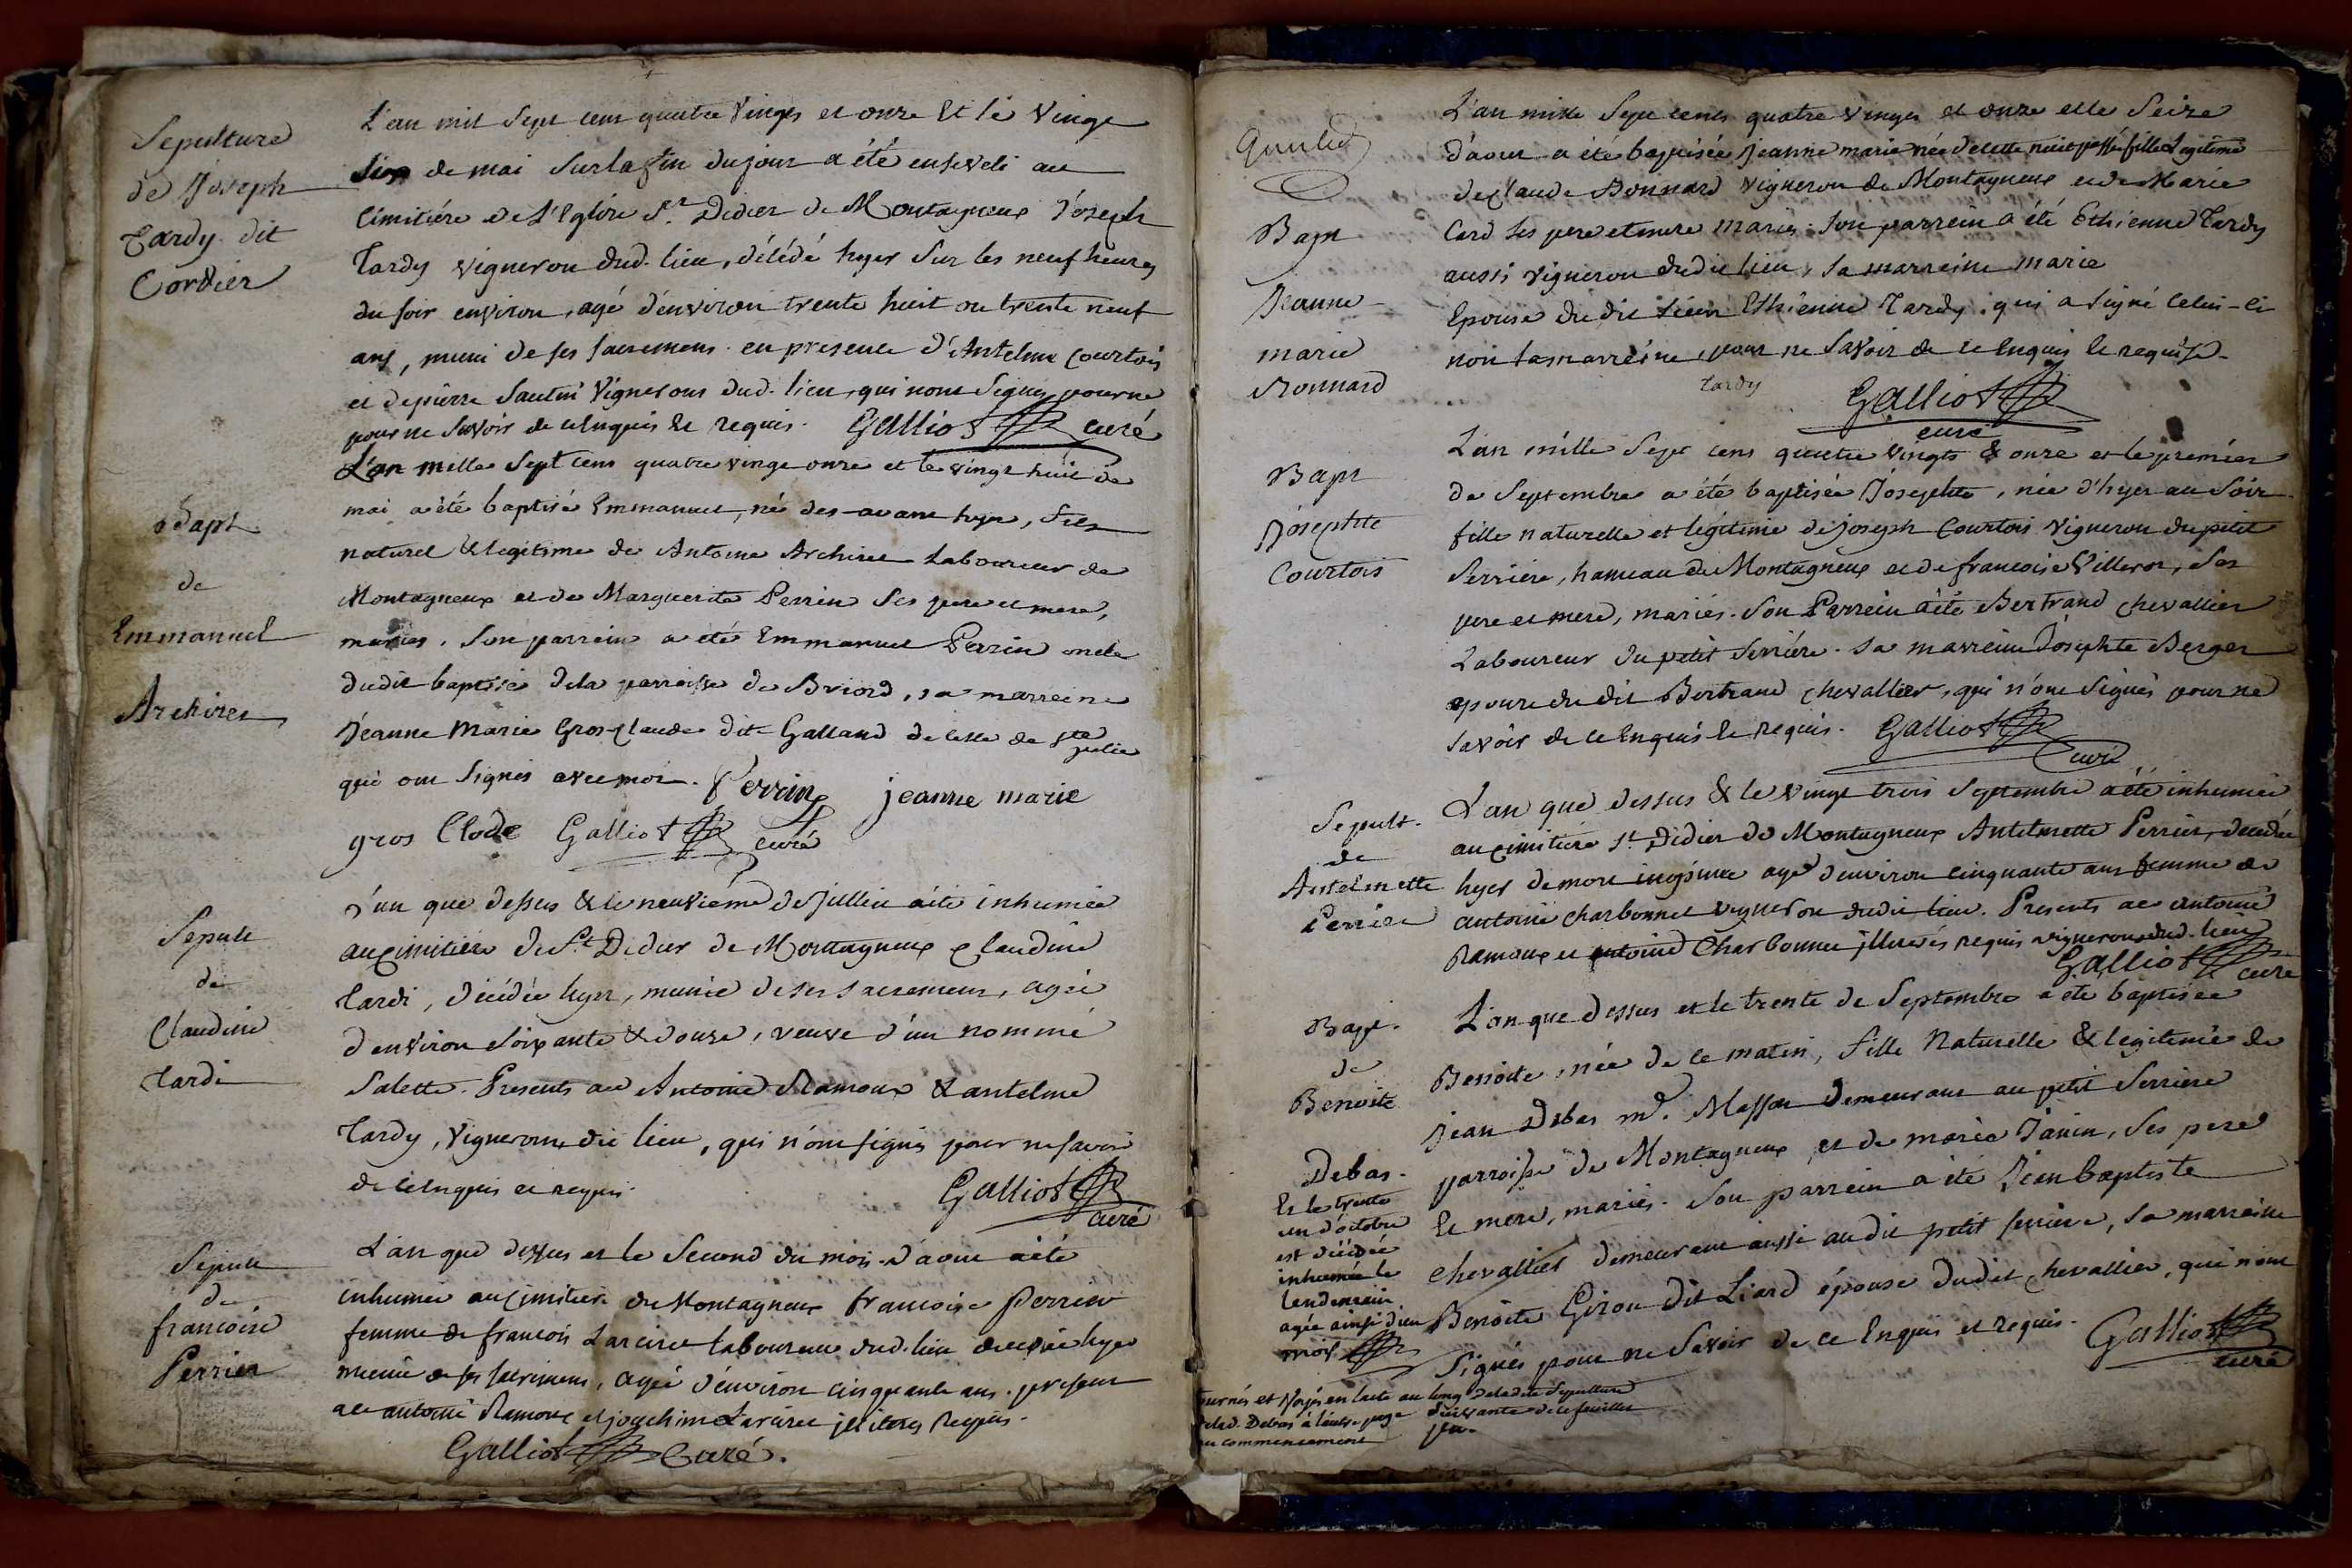 Sepulture
de Joseph
Tardy dit
Cordier
L'an mil sept cens quatre vingts et onze et le vingt
six de mai sur la fin du jour a été enseveli au
cimitiére de L'Eglise St Didier de Montagneux Joseph
Tardy vigneron dud. lieu, décédé hyer sur les neuf heures
du soir environ, agé d'environ trente huit ou trente neuf
ans, muni de ses sacremens en presence d'Antelme Courtois
et de pierre Sautin vignerons dud. lieu, qui n'ont signés pour ne
pour ne savoir de ce enquis & requis. Galliot curé
Bapt.
de
Emmanuel
Archirel
L'an mille sept cens quatre vingt onze et le vingt huit de
mai a été baptisé Emmanuel, né des avant hyer, fils
naturel & legitime de Antoine Archirel Laboureur de
Montagneux et de Marguerite Perrin ses pere et mere,
mariés. son parrein a été Emmanuel Perrin oncle
dudit baptisé de la parroisse de Briord, sa marreine
Jeanne Marie Gros-claude dit Galland de celle de Ste julie
qui ont signés avec moi. Perrin jeanne marie
gros Clode Galliot curé
Sepult
de
Claudine
Tardi
L'an que dessus & le neuviéme de juillet a été inhumée
au cimitière de St. Didier de Montagneux Claudine
Tardi, décédée hyer, munie de ses sacremens, agée
d'environ soixante & douze, veuve d'un nommé
Salette. Presents ace Antoine Ramoux & antelme
Tardy, vignerons du lieu, qui n'ont signés pour ne savoir
de ce enquis et requis. Galliot
curé
Sepult
de
francoise
Perrier
L'an que dessus et le second du mois d'aout a été
inhumée au cimitière de Montagneux francoise Perrier
femme de francois Larciret laboureur dud. lieu decedée hyer
munie de ses sacremens, agée d'environ cinquante ans. présent
ace antoine Ramoux et joachim Larciret illiterés requis.
Galliot Curé.
Bapt
Jeanne
marie
Bonnard
L'an mille sept cens quatre vingts et onze et le seize
d'aout a été baptisée Jeanne marie née de cette nuit passée fille Legitime
de claude Bonnard vigneron de Montagneux et de Marie
Card ses pere et mere mariés. son parrein a été Ethienne Tardy
aussi vigneron dudit lieu, sa marreine marie
Epouse du dit Ethienne Tardy, qui a signé celui-ci
non la marreine, pour ne savoir de ce enquis & requise.
Tardy Galliot
curé
Bapt
Josephte
Courtois
L'an mille sept cens quatre vingts & onze et le premier
de Septembre a été baptisée Josephte, née d'hyer au soir
fille naturelle et légitime de joseph Courtois vigneron du petit
Serriere, hameau de Montagneux et de francoise Villerot, ses
pere et mere, mariés. son Parrein a été Bertrand chevallier
Laboureur du petit Serriére. sa marreine Josephte Berger
epouse du dit Bertrand chevallier, qui n'ont signés pour ne
savoir de ce enquis & requis. Galliot
curé
Sepult.
de
Antelmette
Perrier
L'an que dessus & le vingt trois Septembre a été inhumée
au cimitiere St. Didier de Montagneux Antelmette Perrier, decedée
hyer de mort inopinée agée d'environ cinquante ans femme de
antoine charbonnet vigneron dudit lieu. Presents ace antoine
Ramoux et antoine Charbonnet illiterés requis vignerons dud. lieu
Galliot curé
Bapt.
de
Benoite
Debas.
L'an que dessus et le trente de Septembre a été baptisée
Benoite, née de ce matin, fille Naturelle & legitime de
Jean Debas md. Masson demeurant au petit Serriere
parroisse de Montagneux et de marie Janin, ses pere
& mere, mariés. son parrein a été Jean baptiste
chevallier demeurant aussi audit petit serriere, sa marreine
Benoite Giron dit Liard épouse dudit chevallier, qui n'ont
signés pour ne savoir de ce enquis et requis. Galliot
curé
Et le trente
un d'octobre
est décédée
inhumée le
lendemain
agée ainsi d'un
mois
tournés et voyés en l'acte au long de ladite sepulture
delad. Debas à l'autre page suivante de ce feuillet
au commencement